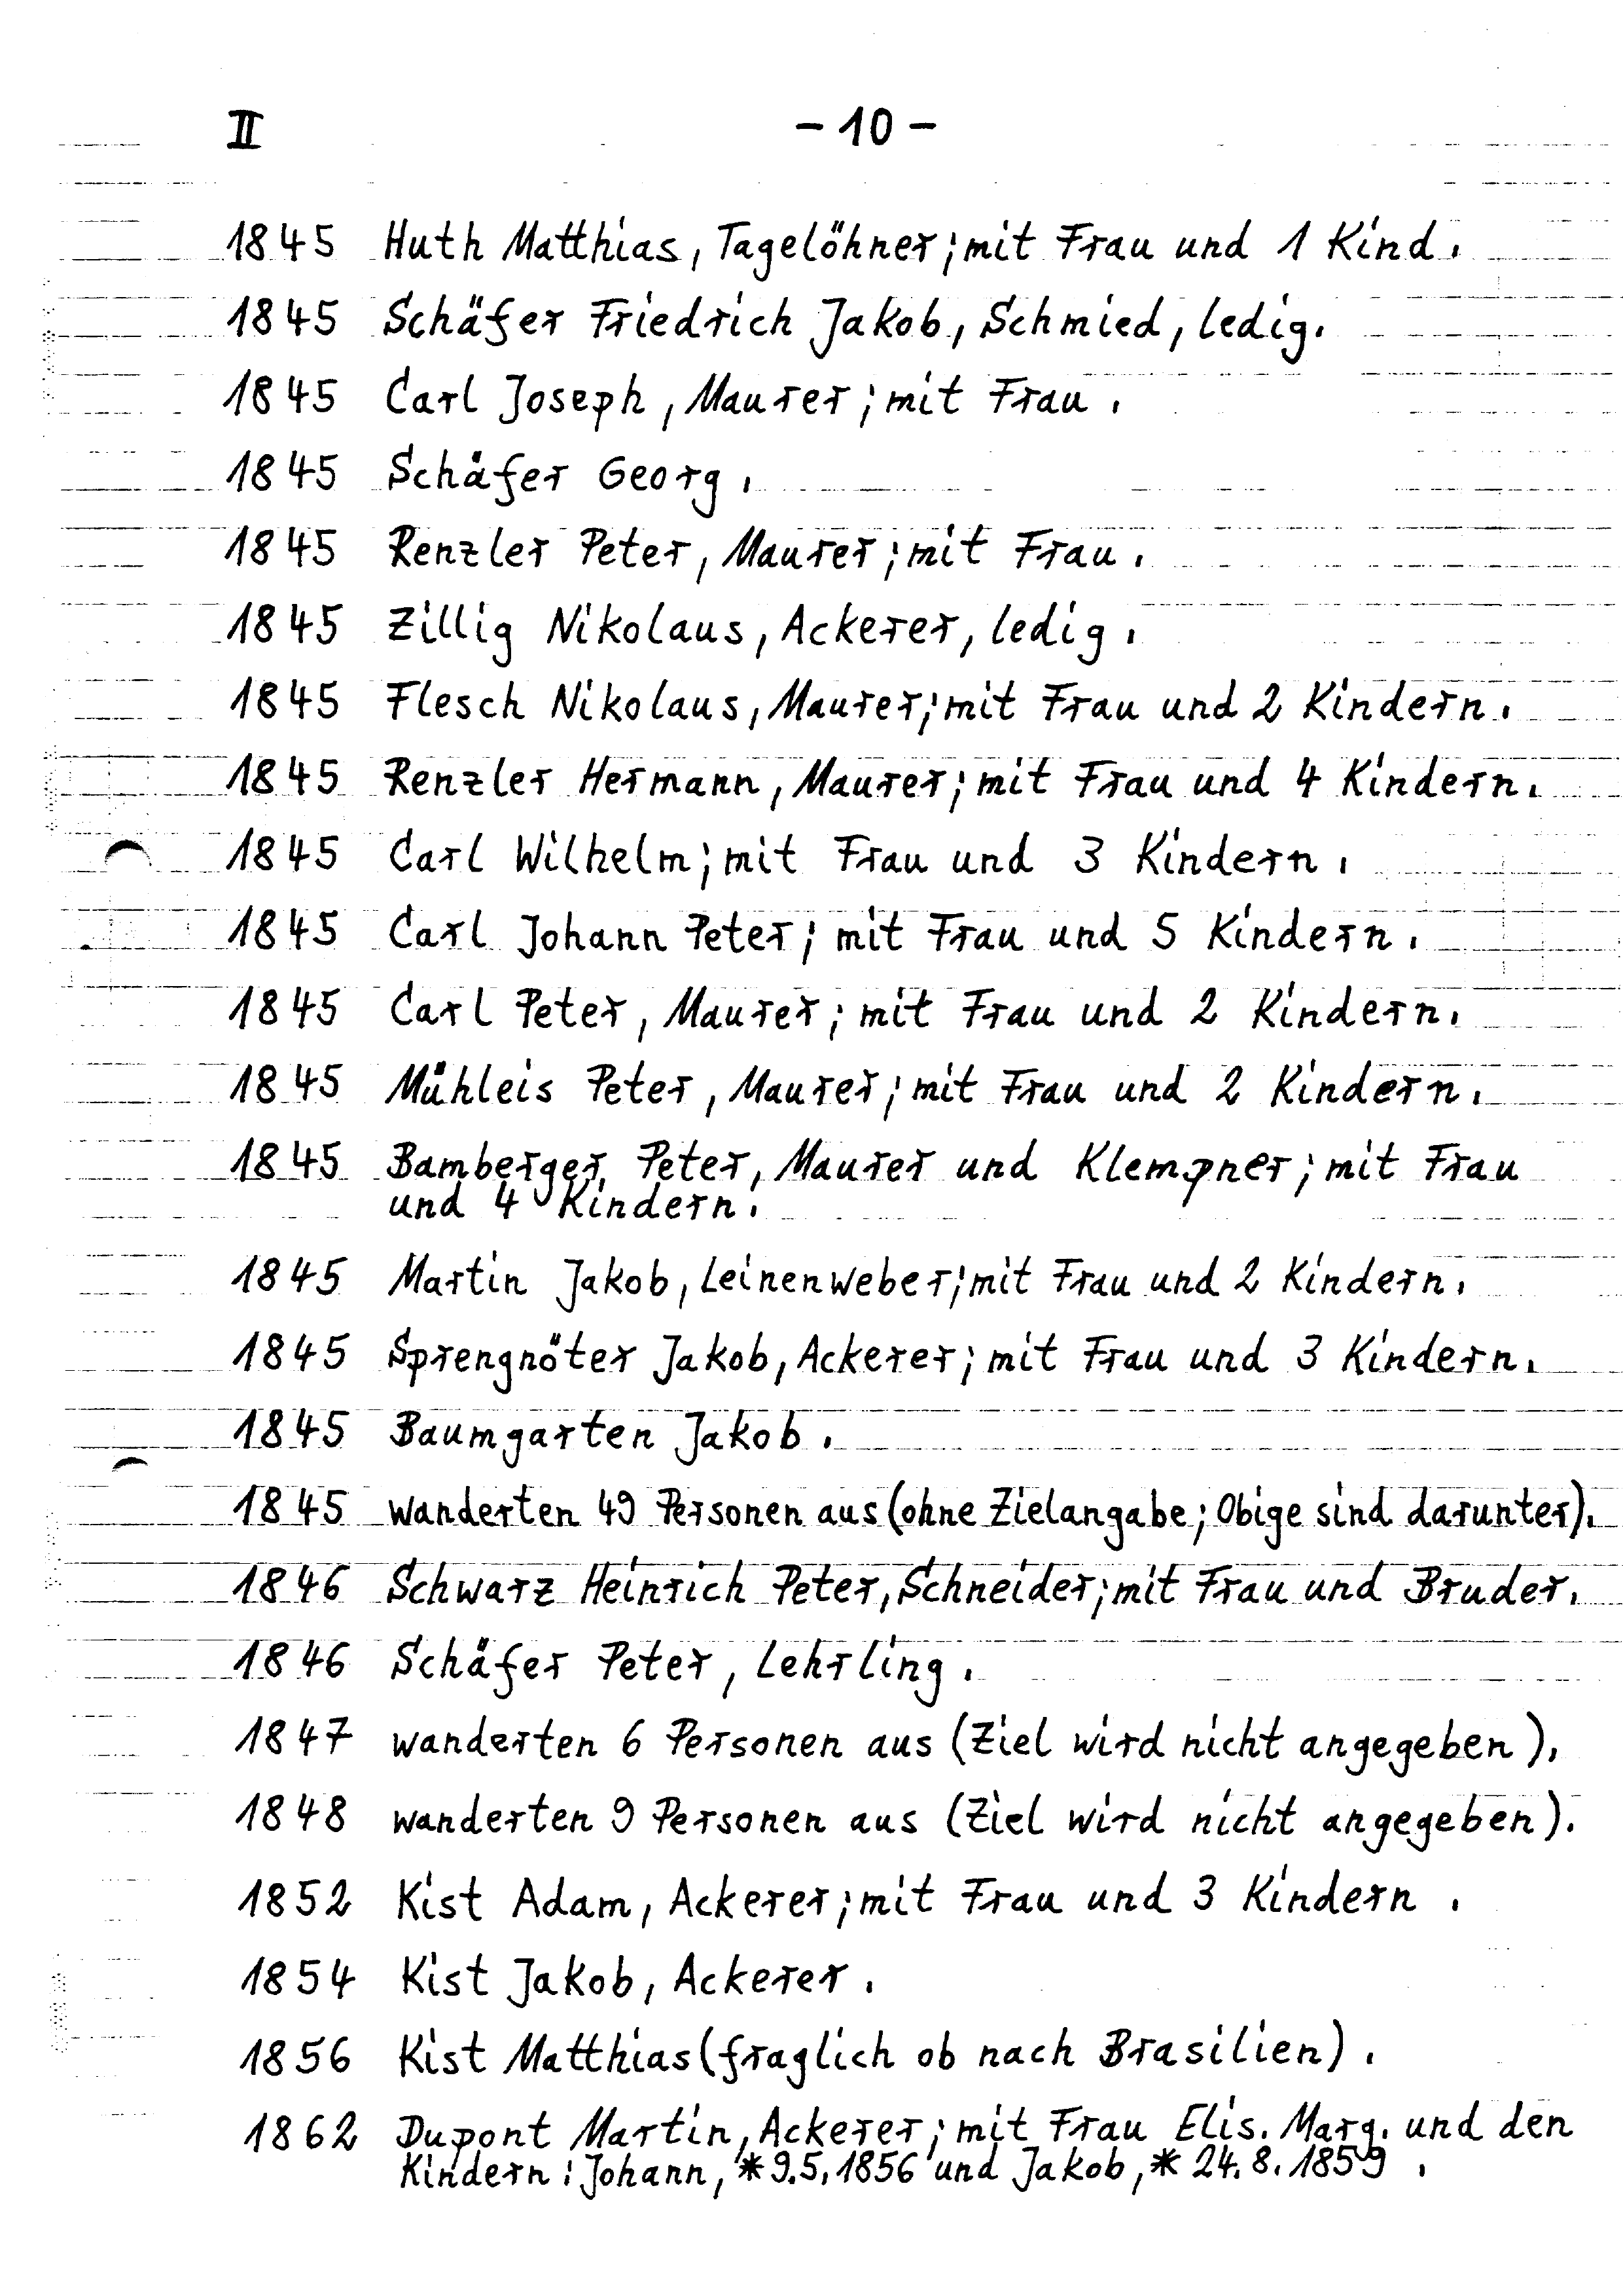 II - 10 -
1845 Huth Matthias, Tagelöhner; mit Frau und 1 Kind.
1845 Schäfer Friedrich Jakob, Schmied, ledig.
1845 Carl Joseph, Maurer; mit Frau.
1845 Schäfer Georg.
1845 Renzler Peter, Maurer; mit Frau.
1845 Zillig Nikolaus, Ackerer, ledig.
1845 Flesch Nikolaus, Maurer; mit Frau und 2 Kindern.
1845 Renzler Hermann, Maurer; mit Frau und 4 Kindern.
1845 Carl Wilhelm; mit Frau und 3 Kindern.
1845 Carl Johann Peter; mit Frau und 5 Kindern.
1845 Carl Peter, Maurer; mit Frau und 2 Kindern.
1845 Mühleis Peter, Maurer; mit Frau und 2 Kindern.
1845 Bamberger Peter, Maurer und Klempner; mit Frau
und 4 Kindern.
1845 Martin Jakob, Leinenweber; mit Frau und 2 Kindern.
1845 Sprengnöter Jakob, Ackerer; mit Frau und 3 Kindern.
1845 Baumgarten Jakob.
1845 wanderten 49 Personen aus (ohne Zielangabe; Obige sind darunter).
1846 Schwarz Heinrich Peter, Schneider; mit Frau und Bruder.
1846 Schäfer Peter, Lehrling.
1847 wanderten 6 Personen aus (Ziel wird nicht angegeben).
1848 wanderten 9 Personen aus (Ziel wird nicht angegeben).
1852 Kist Adam, Ackerer; mit Frau und 3 Kindern.
1854 Kist Jakob, Ackerer.
1856 Kist Matthias (fraglich ob nach Brasilien).
1862 Dupont Martin, Ackerer; mit Frau Elis. Marg. und den
Kindern: Johann, * 9.5.1856 und Jakob, * 24.8.1859.